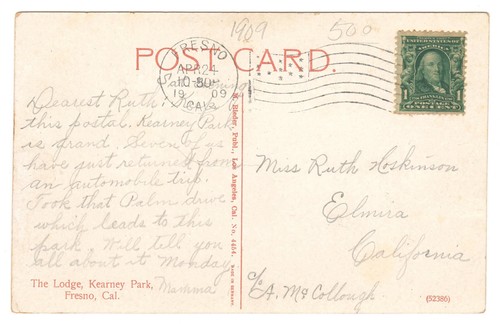 1909 500
POST CARD.
FRESNO
APR 24
10 30 P
1909
CAL.
UNITED STATES OF AMERICA
1 1
POSTAGE
ONE CENT
Dearest Ruth:
this postal. Kearney Park
is grand. Seven of us
have just returned from
an automobile trip.
Took that Palm drive
which leads to this
park. Will tell you
all about it Monday
Mamma
The Lodge, Kearney Park,
Fresno, Cal.
M. Rieder, Publ., Los Angeles, Cal. No. 4464.
MADE IN GERMANY.
Miss Ruth Hoskinson
Elmira
California
c/o A. McCollough
(52386)